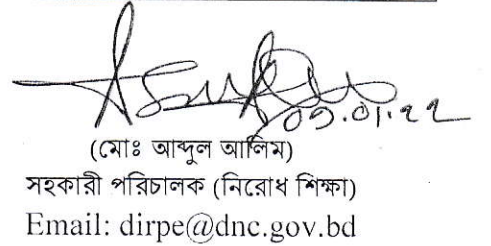 (মোঃ আব্দুল আলিম)
সহকারী পরিচালক (নিরোধ শিক্ষা)
Email: dirpe@dnc.gov.bd